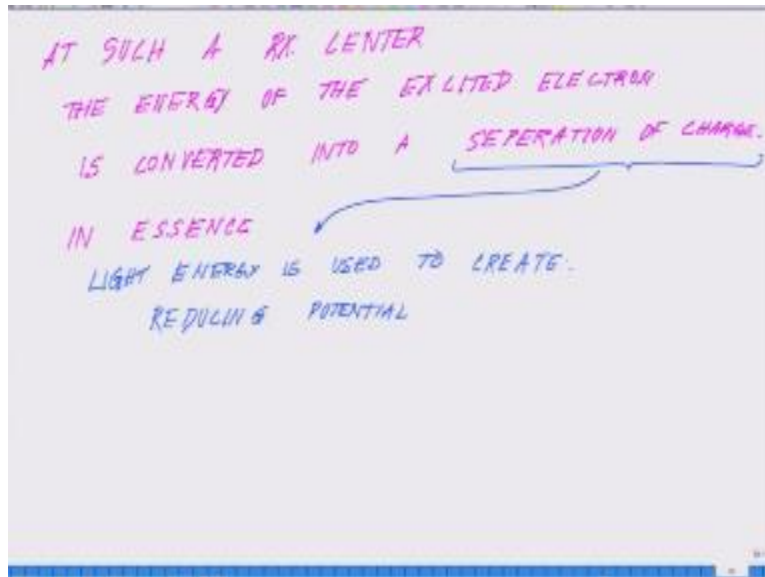 AT SUCH A RX. CENTER
THE ENERGY OF THE EXCITED ELECTRON
IS CONVERTED INTO A SEPERATION OF CHARGE.
IN ESSENCE
LIGHT ENERGY IS USED TO CREATE.
REDUCING POTENTIAL